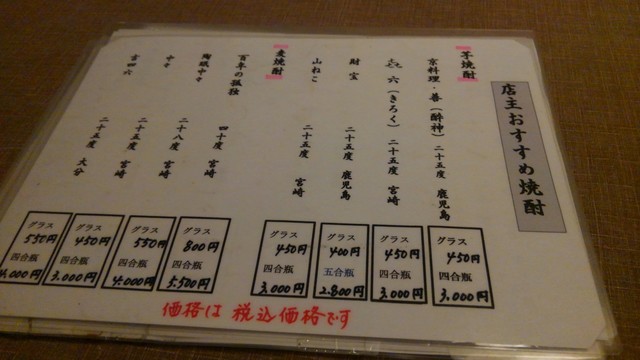 店主おすすめ焼酎
芋焼酎
京料理・善(酔神) 二十五度 鹿児島
グラス
450円
四合瓶
3.000円
㐂六(きろく) 二十五度 宮崎
グラス
450円
四合瓶
3.000円
財宝 二十五度 鹿児島
グラス
400円
五合瓶
2.800円
山ねこ 二十五度 宮崎
グラス
450円
四合瓶
3.000円
麦焼酎
百年の孤独 四十度 宮崎
グラス
800円
四合瓶
5.500円
陶眠中々 二十八度 宮崎
グラス
550円
四合瓶
4.000円
中々 二十五度 宮崎
グラス
450円
四合瓶
3.000円
吉四六 二十五度 大分
グラス
550円
四合瓶
4.000円
価格は税込価格です